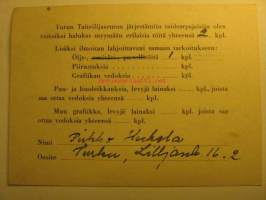 Turun Taiteilijaseuran järjestämiin taidearpajaisiin olen
vaiksiksi halukas myymään erilaisia töitä yhteensä 2 kpl.
Lisäksi ilmoitan lahjoittavani samaan tarkoitukseen:
Öljy-, 1 kpl.
Piirustuksia kpl.
Grafiikan vedoksia kpl.
Puu- ja linoleikkauksia, levyjä lainaksi kpl, joista
saa ottaa vedoksia yhteensä kpl.
Muu grafiikka, levyjä lainaksi kpl, joista saa
ottaa vedoksia yhteensä kpl.
Nimi Heikola
Osoite Turku, 16. 2